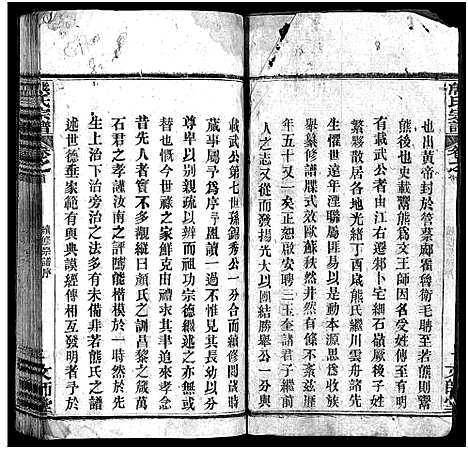 也出黃帝封於管蔡郕霍魯衛毛聃至若熊則鬻
熊後也史載鬻熊爲文王師因名受姓傳至明有
有載武公者由江右遷邾卜宅細石嶺厥後子姓
繁夥散居各地光緒丁酉歲熊氏繼川雲舟諸先
生懼世遠年湮聯屬匪易以是敦請
舉纂修譜牒式效歐蘇秩然井然有條不紊茲歷
年五十又一矣正恕啟安聘三玉奎諸君子繼前
人之志又從而發揚光大以團結勝舉公一分與
載武公第七世孫錦秀公一分合而續修閱歲時
蕆事屬予爲序予展讀一過不惟見其長幼以分
尊卑以別親疏以辨而祖功宗德繼述之亦無或
替也慨今世祿之家鮮克由禮求其聿追來孝念
昔先人者實不多覯縱曰顏氏之訓昌黎之箴萬
石君之孝謹汝南之評隲能楷模於一時然於先
生上治下治旁治之法多有未備非若熊氏之譜
述世德垂家範有典有謨經傳相互發明者予於
熊氏宗譜
卷之一
續修宗譜序
文師堂